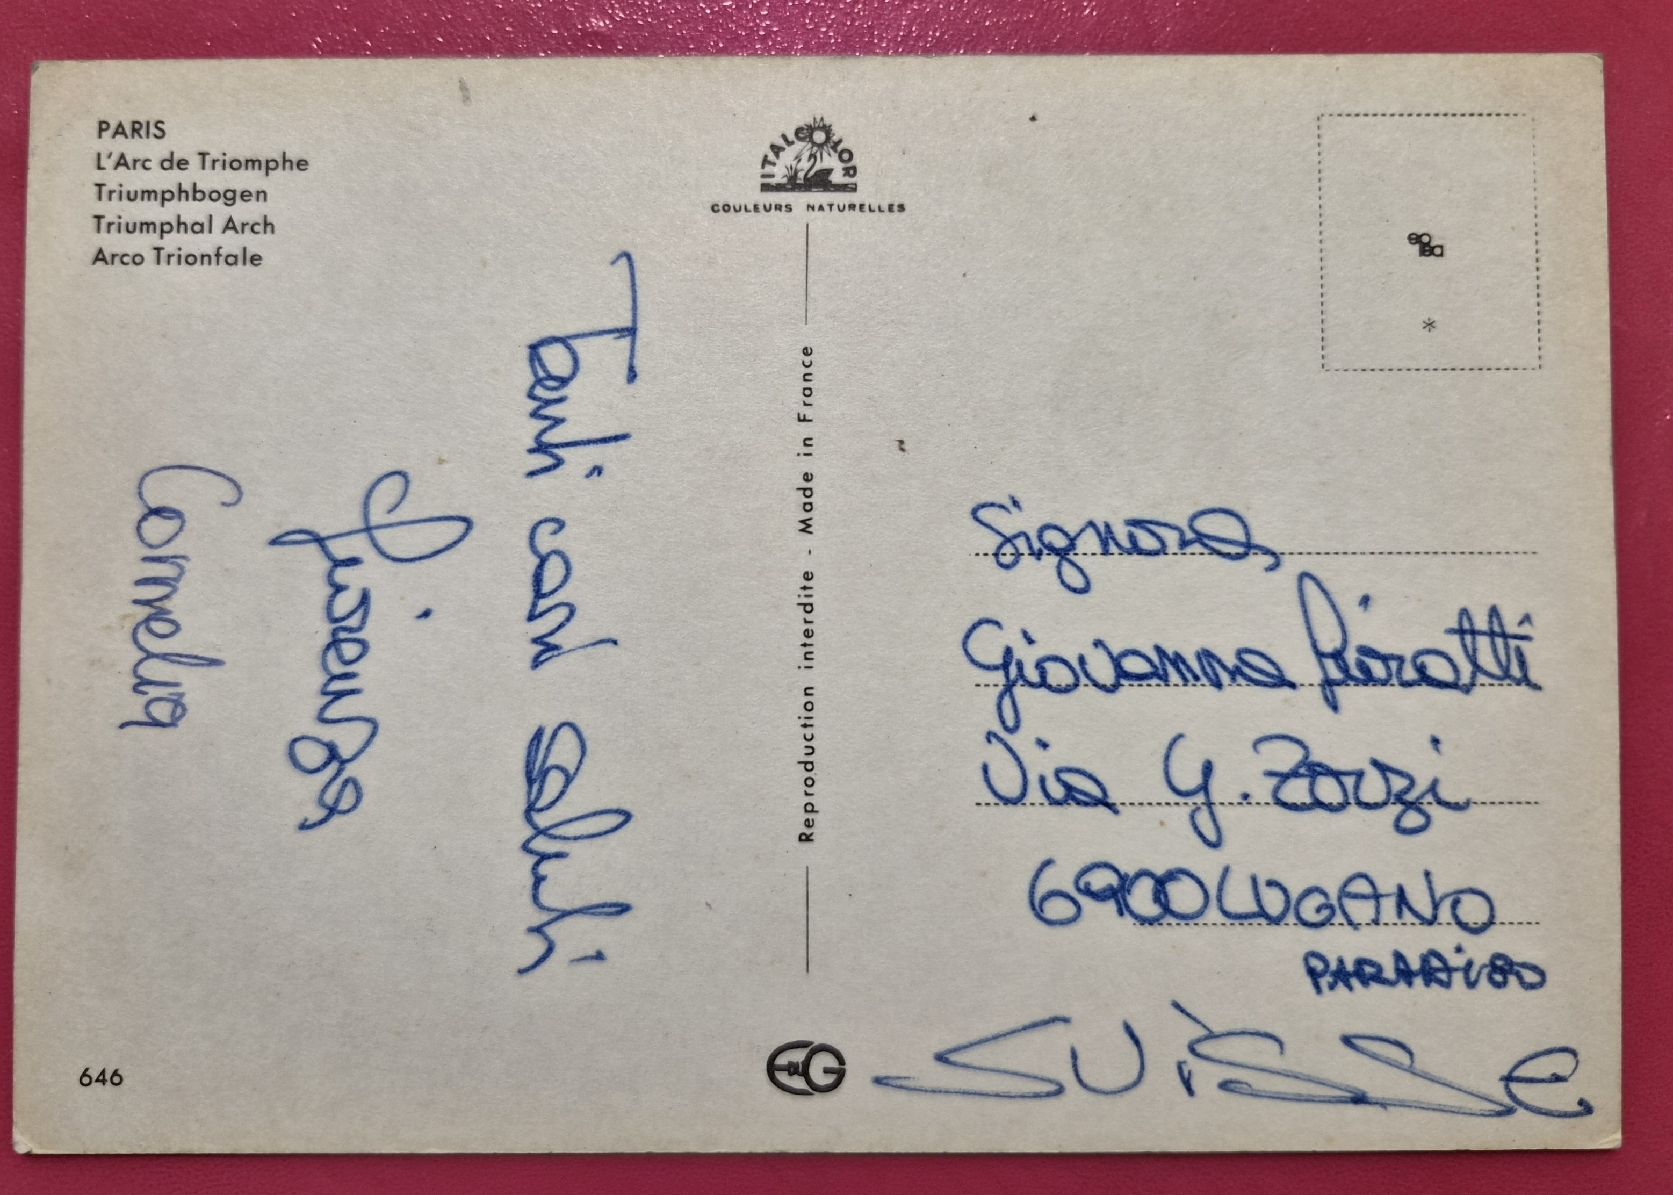 PARIS
L'Arc de Triomphe
Triumphbogen
Triumphal Arch
Arco Trionfale
ITALCOLOR
COULEURS NATURELLES
Reproduction interdite - Made in France
Tanti cari saluti
Cornelia
Signora,
Giovanna Pieratti
Via G. Zorzi
6900 LUGANO
PARADISO
SUISSE
646
EG